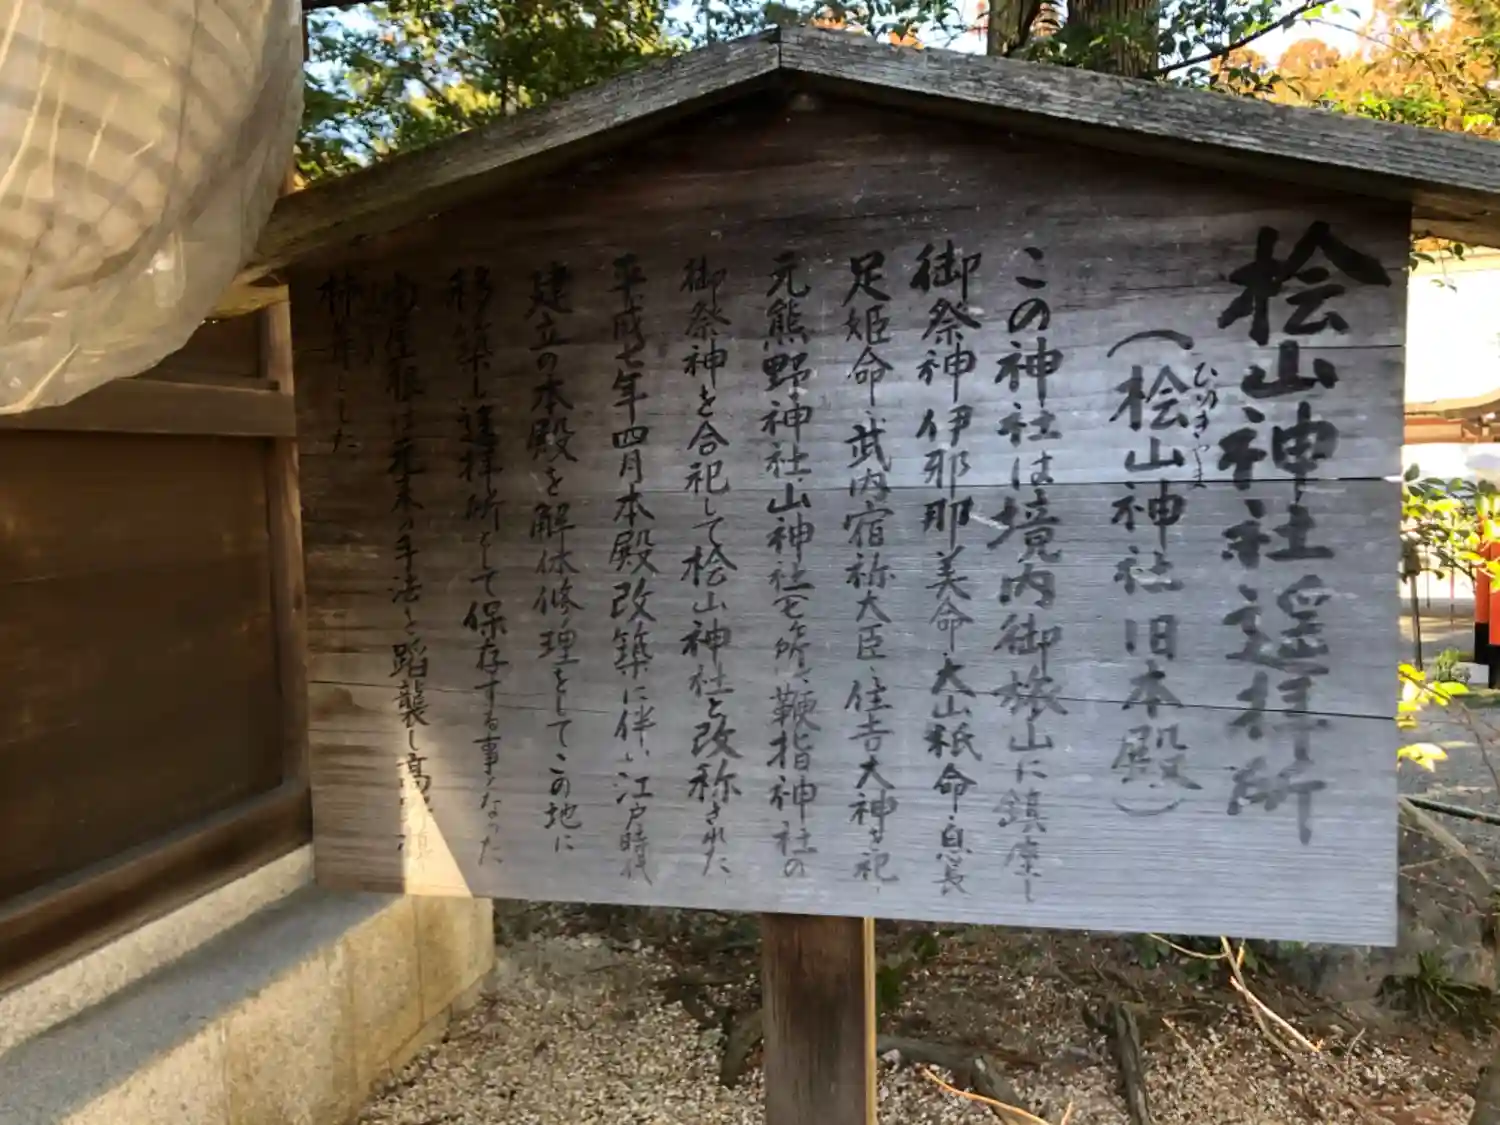 桧山神社遥拝所
(桧山神社 旧本殿)
ひのきやま
この神社は境内御旅山に鎮座し
御祭神 伊邪那美命・大山祇命・息長
足姫命・武内宿祢大臣・住吉大神を祀
元熊野神社・山神社(七ヶ所)・鞭指神社の
御祭神を合祀して桧山神社と改称された
平成七年四月本殿改築に伴い江戸時代
建立の本殿を解体修理をしてこの地に
移築し遥拝所として保存する事となった
尚屋根は元来の手法を踏襲し高
柿葺とした